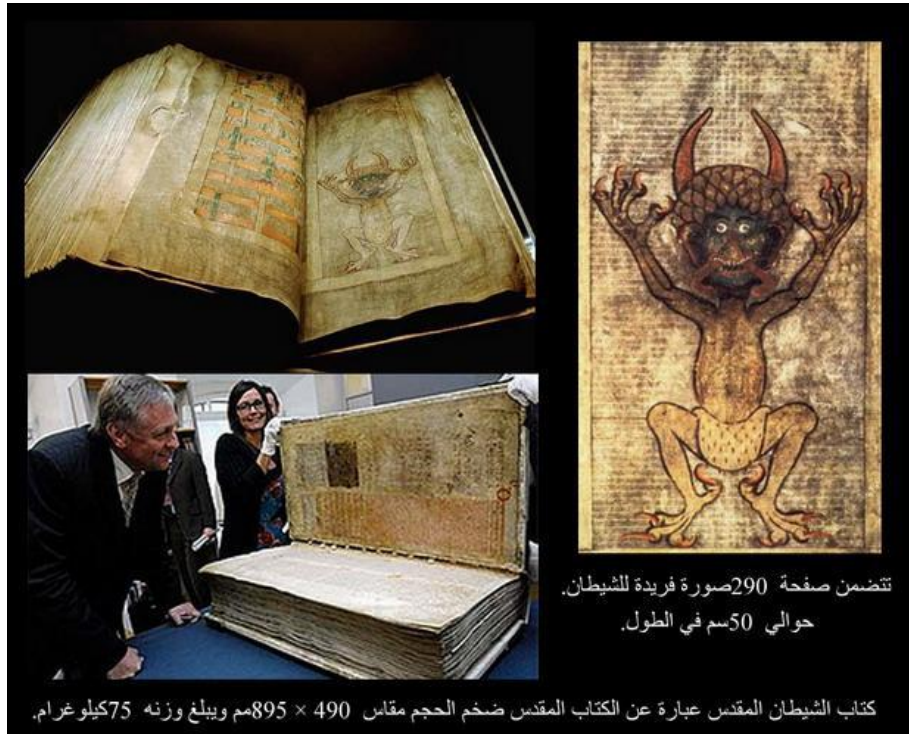 تتضمن صفحة 290صورة فريدة للشيطان.
حوالي 50سم في الطول.
كتاب الشيطان المقدس عبارة عن الكتاب المقدس ضخم الحجم مقاس 490 × 895مم ويبلغ وزنه 75كيلوغرام.